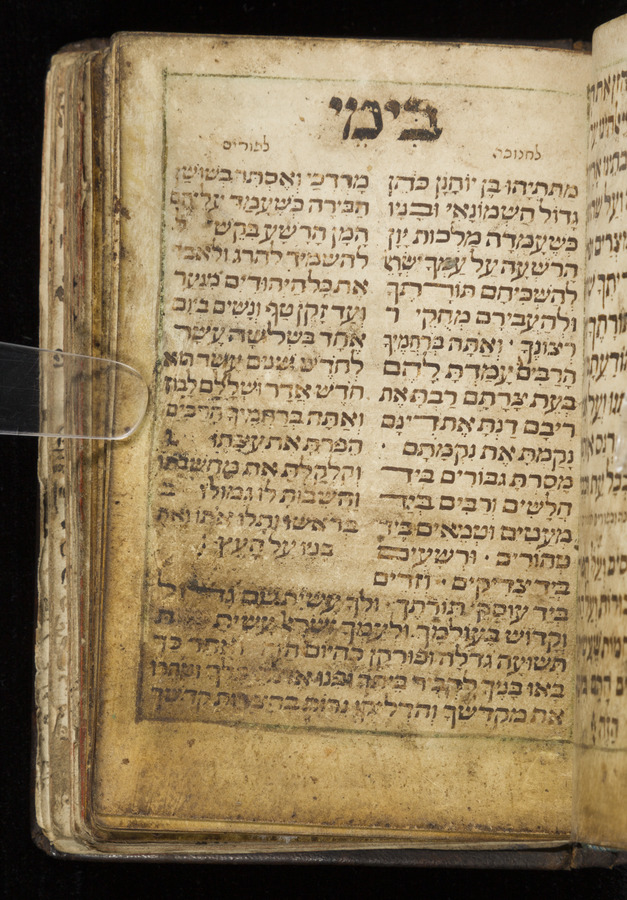 בימי
לחנוכה
מתתיהו בן יוחנן כהן
גדול חשמונאי ובניו
כשעמדה מלכות יון
הרשעה על עמך ישר
להשכיחם תורתך
ולהעבירם מחקי ר
רצונך ואתה ברחמיך
הרבים עמדת להם
בעת צרתם רבת את
ריבם דנת את דינם
נקמת את נקמתם
מסרת גבורים ביד
חלשים ורבים ביד
מעטים וטמאים ביד
טהורים ורשעים
ביד צדיקים וזדים
לפורים
מרדכי ואסתר בשושן
הבירה כשעמד עליהם
המן הרשע בקש ל
להשמיד להרג ולאבד
את כל היהודים מנער
ועד זקן טף ונשים ביום
אחד בשלשה עשר
לחדש שנים עשר הוא
חדש אדר ושללם לבוז
ואתה ברחמיך הרבים
הפרת את עצתו
וקלקלת את מחשבתו
והשבות לו גמולו ב
בראשו ותלו אתו ואת
בניו על העץ
ביד עוסקי תורתך ולך עשית שם גדול
וקדוש בעולמך ולעמך ישראל עשית ת
תשועה גדלה ופורקן כהיום הזה ואחר כך
באו בניך לדביר ביתך ופנו את היכלך וטהרו
את מקדשך והדליקו נרות בחצרות קדשך